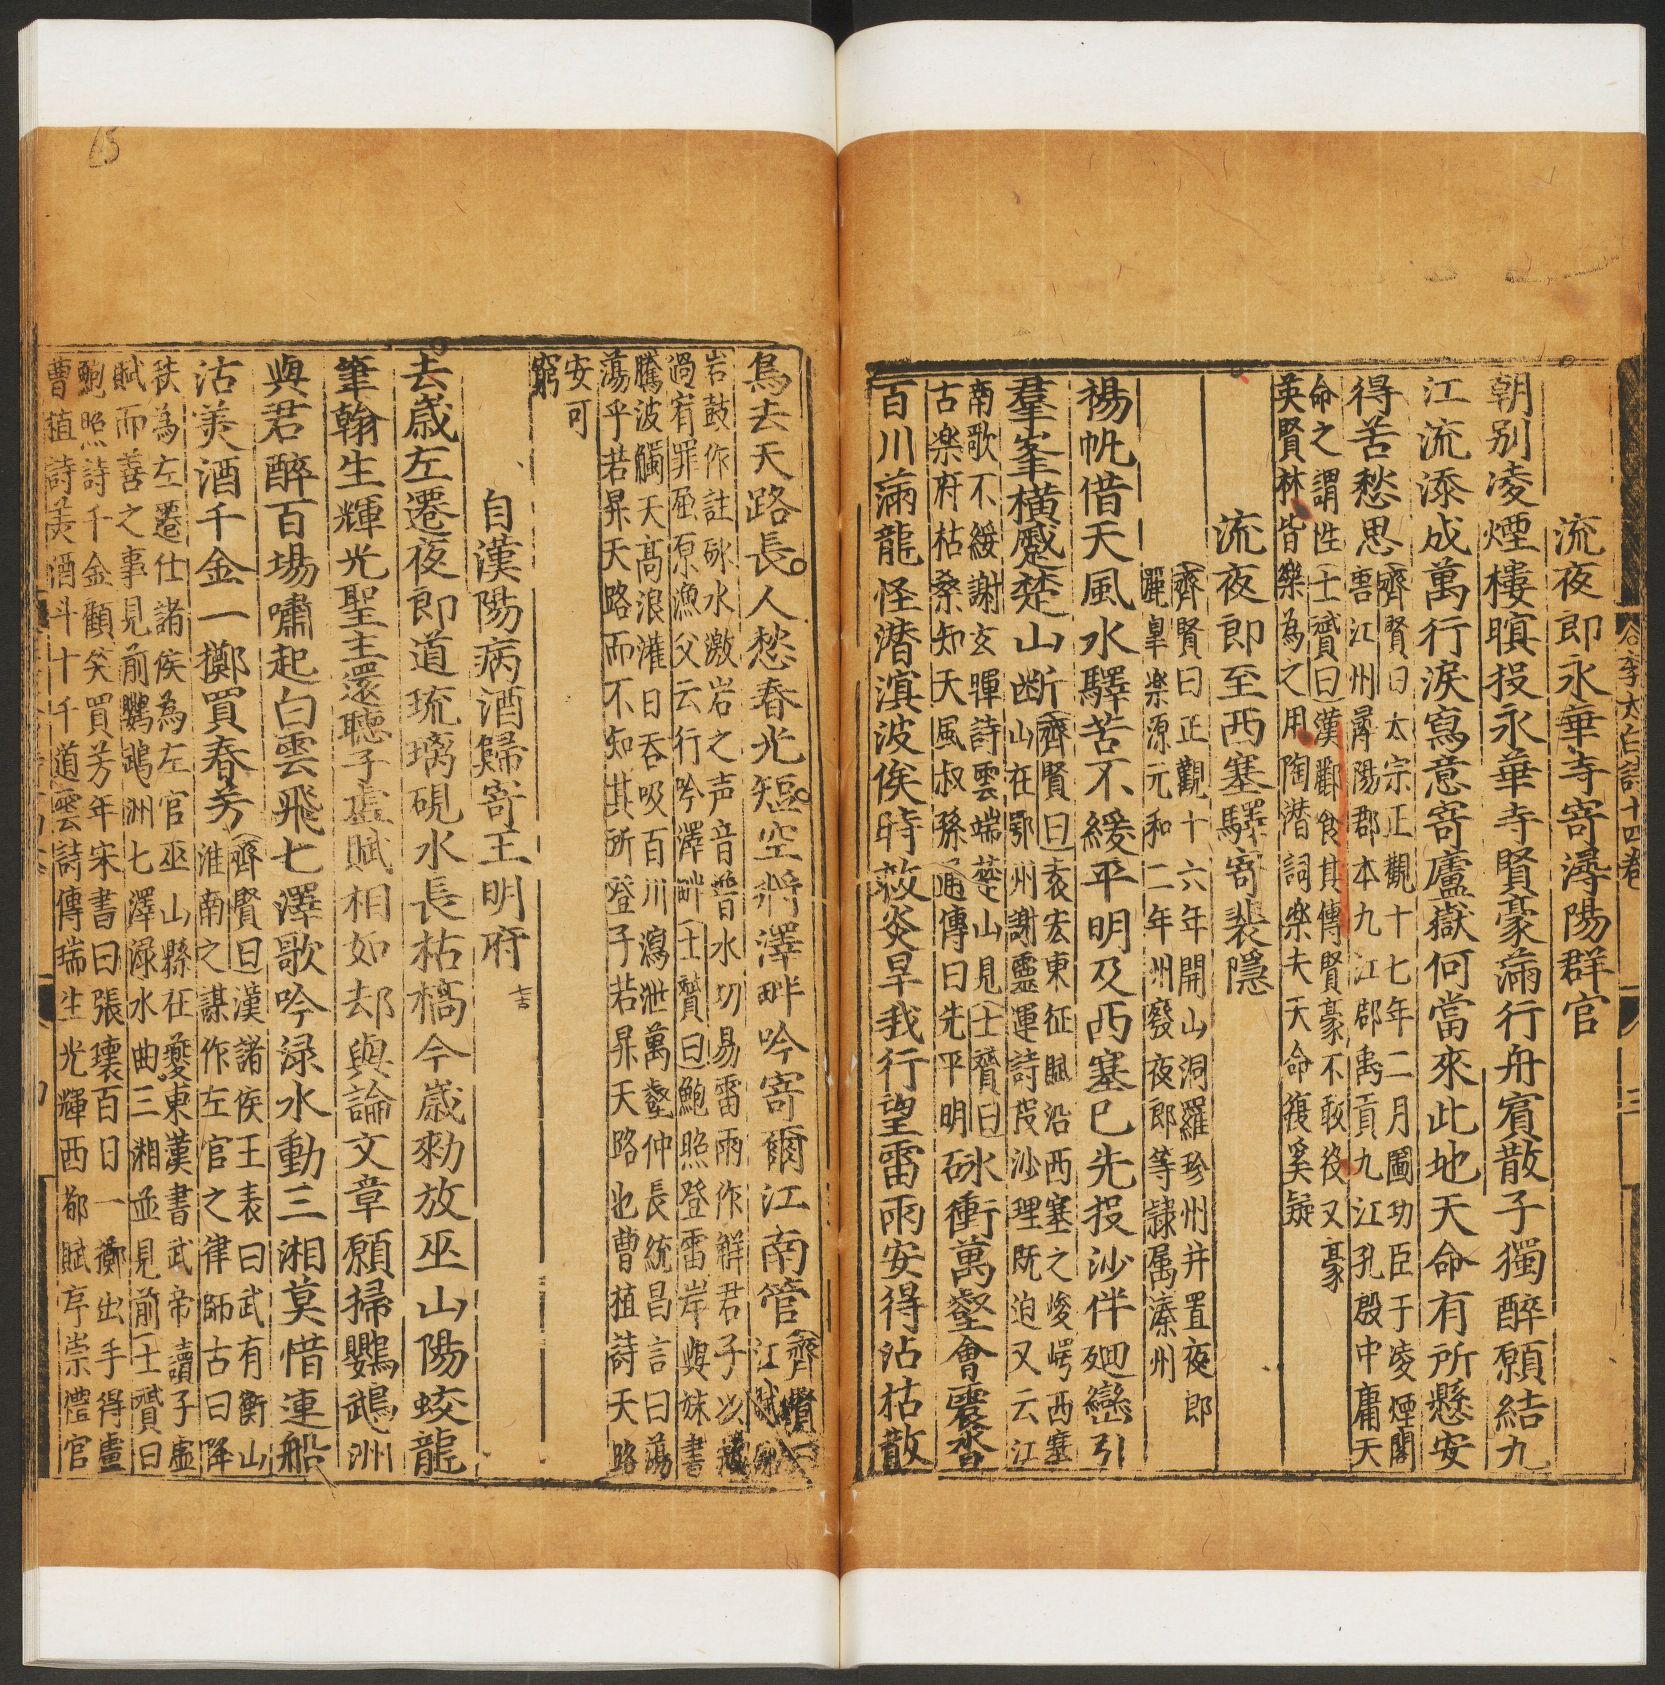 流夜郎永華寺寄潯陽群官
朝別凌煙樓暝投永華寺賢豪滿行舟賓散子獨醉願結九
江流添成萬行淚寫意寄廬嶽何當來此地天命有所懸安
得苦愁思
齊賢曰太宗正觀十七年二月圖功臣于凌煙閣
唐江州潯陽郡本九江郡禹貢九江孔殷中庸天
命之謂性士贇曰漢酈食其傳賢豪不敢役又豪
英賢林皆樂為之用陶潜詞樂夫天命復奚疑
流夜郎至西塞驛寄裴隱
齊賢曰正觀十六年開山洞羅珍州并置夜郎
麗皐樂源元和二年州廢夜郎等隷属溱州
揚帆借天風水驛苦不緩平明及西塞已先投沙伴廻巒引
羣峯橫蹙楚山斷
齊賢曰袁宏東征賦沿西塞之峻崿西塞
山在鄂州謝靈運詩叚沙理既迫又云江
南歌不緩謝玄暉詩雲端楚山見士贇曰
古樂府枯桑知天風叔孫通傳曰先平明
砅衝萬壑會震沓
百川滿龍怪潜溟波俟時救炎旱我行望雷雨安得沾枯散
鳥去天路長人愁春光短空將澤畔吟寄爾江南管
齊賢曰
江賦砅
岩鼓作註砅水激岩之声音普水切易雷雨作解君子以赦
過宥罪屈原漁父云行吟澤畔士贇曰鮑照登雷岸與妹書
騰波觸天高浪灌日吞吸百川瀉泄萬壑仲長統昌言曰蕩
蕩乎若昇天路而不知其所登子若昇天路也曹植詩天路
安可
窮
自漢陽病酒歸寄王明府
去歲左遷夜郎道琉璃硯水長枯槁今歲勑放巫山陽蛟龍
筆翰生輝光聖主還聽子虛賦相如却與論文章願掃鸚鵡洲
與君醉百場嘯起白雲飛七澤歌吟渌水動三湘莫惜連船
沽美酒千金一擲買春芳
齊賢曰漢諸侯王表曰武有衡山
淮南之謀作左官之律師古曰降
秩為左遷仕諸侯為左官巫山縣在夔東漢書武帝讀子虛
賦而善之事見前鸚鵡洲七澤渌水曲三湘並見前士贇曰
鮑照詩千金顧笑買芳年宋書曰張壞百日一擲出手得盧
曹植詩美酒斗十千道雲詩傳瑞生光輝西都賦序崇禮官